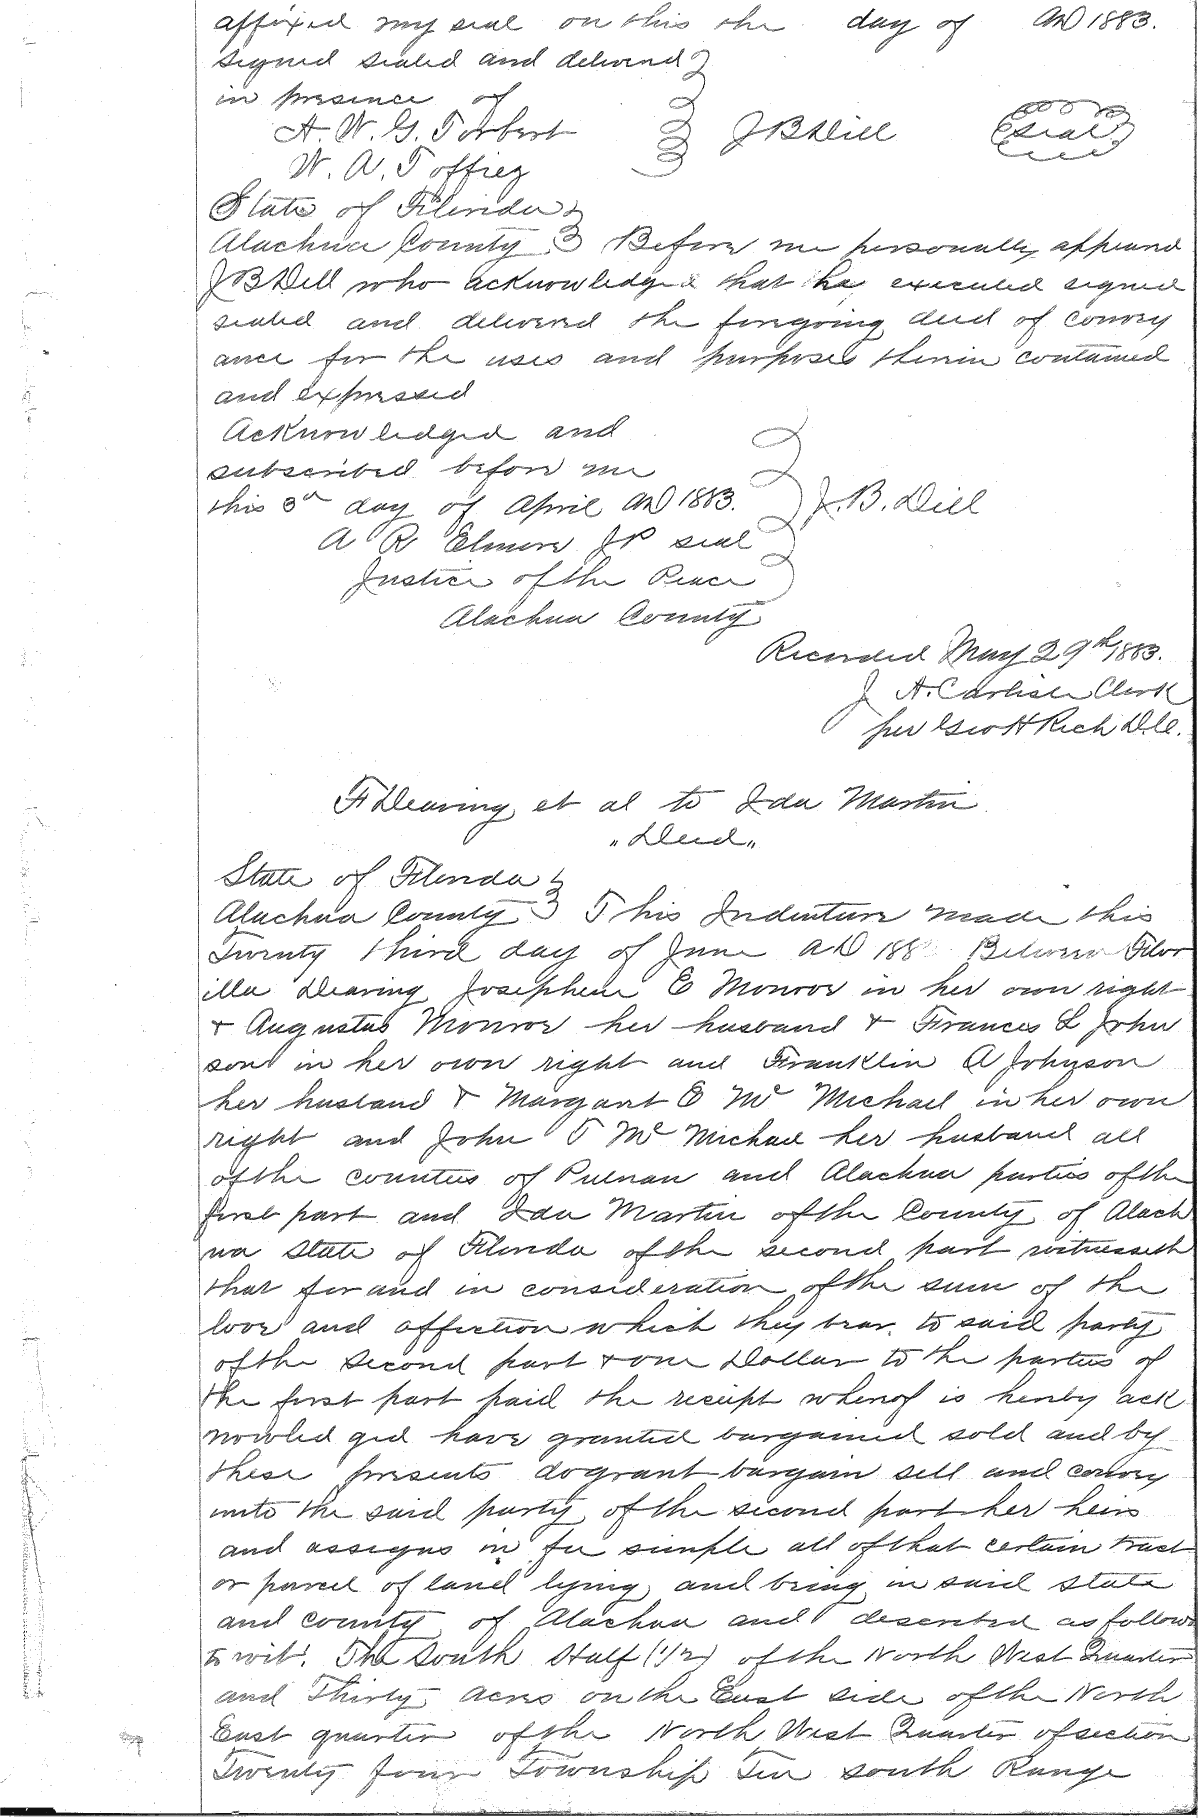 affixed my seal on this the day of AD 1883.
signed sealed and delivered
in presence of
A. W. G. Torbert
J B Dill
Seal
W. A.
State of Florida
Alachua County Before me personally appeard
J B Dill who acknowledged that he executed signed
sealed and delivered the foregoing deed of convey
ance for the uses and purposes therein contained
and expressed
Acknowledged and
subscribed before me
this 3d day of April AD 1883.
J. B. Dill
A R Elmore JP seal
Justice of the Peace
Alachua County
Recorded May 29th 1883.
J A. Carlisle Clerk
per Geo H Rich D.C.
F Dearing et al to Ida Martin
"Deed"
State of Florida
Alachua County This Indenture made this
Twenty third day of June AD 188 Between Flor
illa Dearing Josephine E Monroe in her own right
& Augustus Monroe her husband & Frances L John
son in her own right and Franklin A Johnson
her husband & Margaret E Mc Michael in her own
right and John T Mc Michael her husband all
of the counties of Putnam and Alachua parties of the
first part and Ida Martin of the County of Alach
ua State of Florida of the second part witnesseth
that for and in consideration of the sum of the
love and affection which they bear to said party
of the second part & one Dollar to the parties of
the first part paid the receipt whereof is hereby ack
nowledged have granted bargained sold and by
these presents do grant bargain sell and convey
unto the said party of the second part her heirs
and assigns in fee simple all of that certain tract
or parcel of land lying and being in said state
and county of Alachua and described as follows
to wit. The South Half (1/2) of the North West Quarter
and Thirty Acres on the East side of the North
East quarter of the North West Quarter of section
Twenty four Township Ten south Range